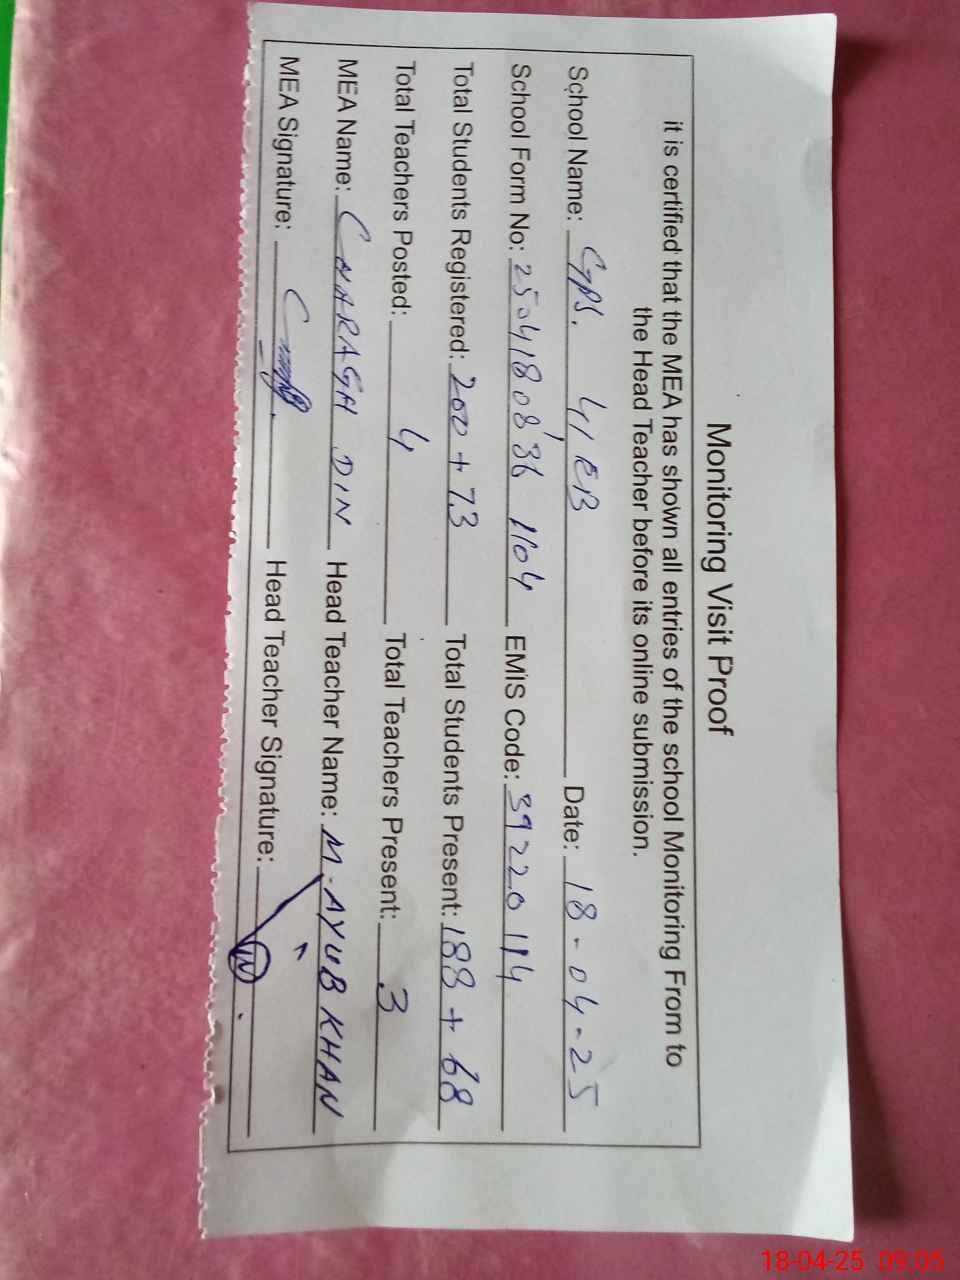 Monitoring Visit Proof
it is certified that the MEA has shown all entries of the school Monitoring From to
the Head Teacher before its online submission.
School Name: GPS. 41 EB Date: 18-04-25
School Form No: 2504180836 1104 EMIS Code: 39220114
Total Students Registered: 200 + 73 Total Students Present: 188 + 68
Total Teachers Posted: 4 Total Teachers Present: 3
MEA Name: CHARAGH DIN Head Teacher Name: M. AYUB KHAN
MEA Signature: Head Teacher Signature:
18-04-25 09:05